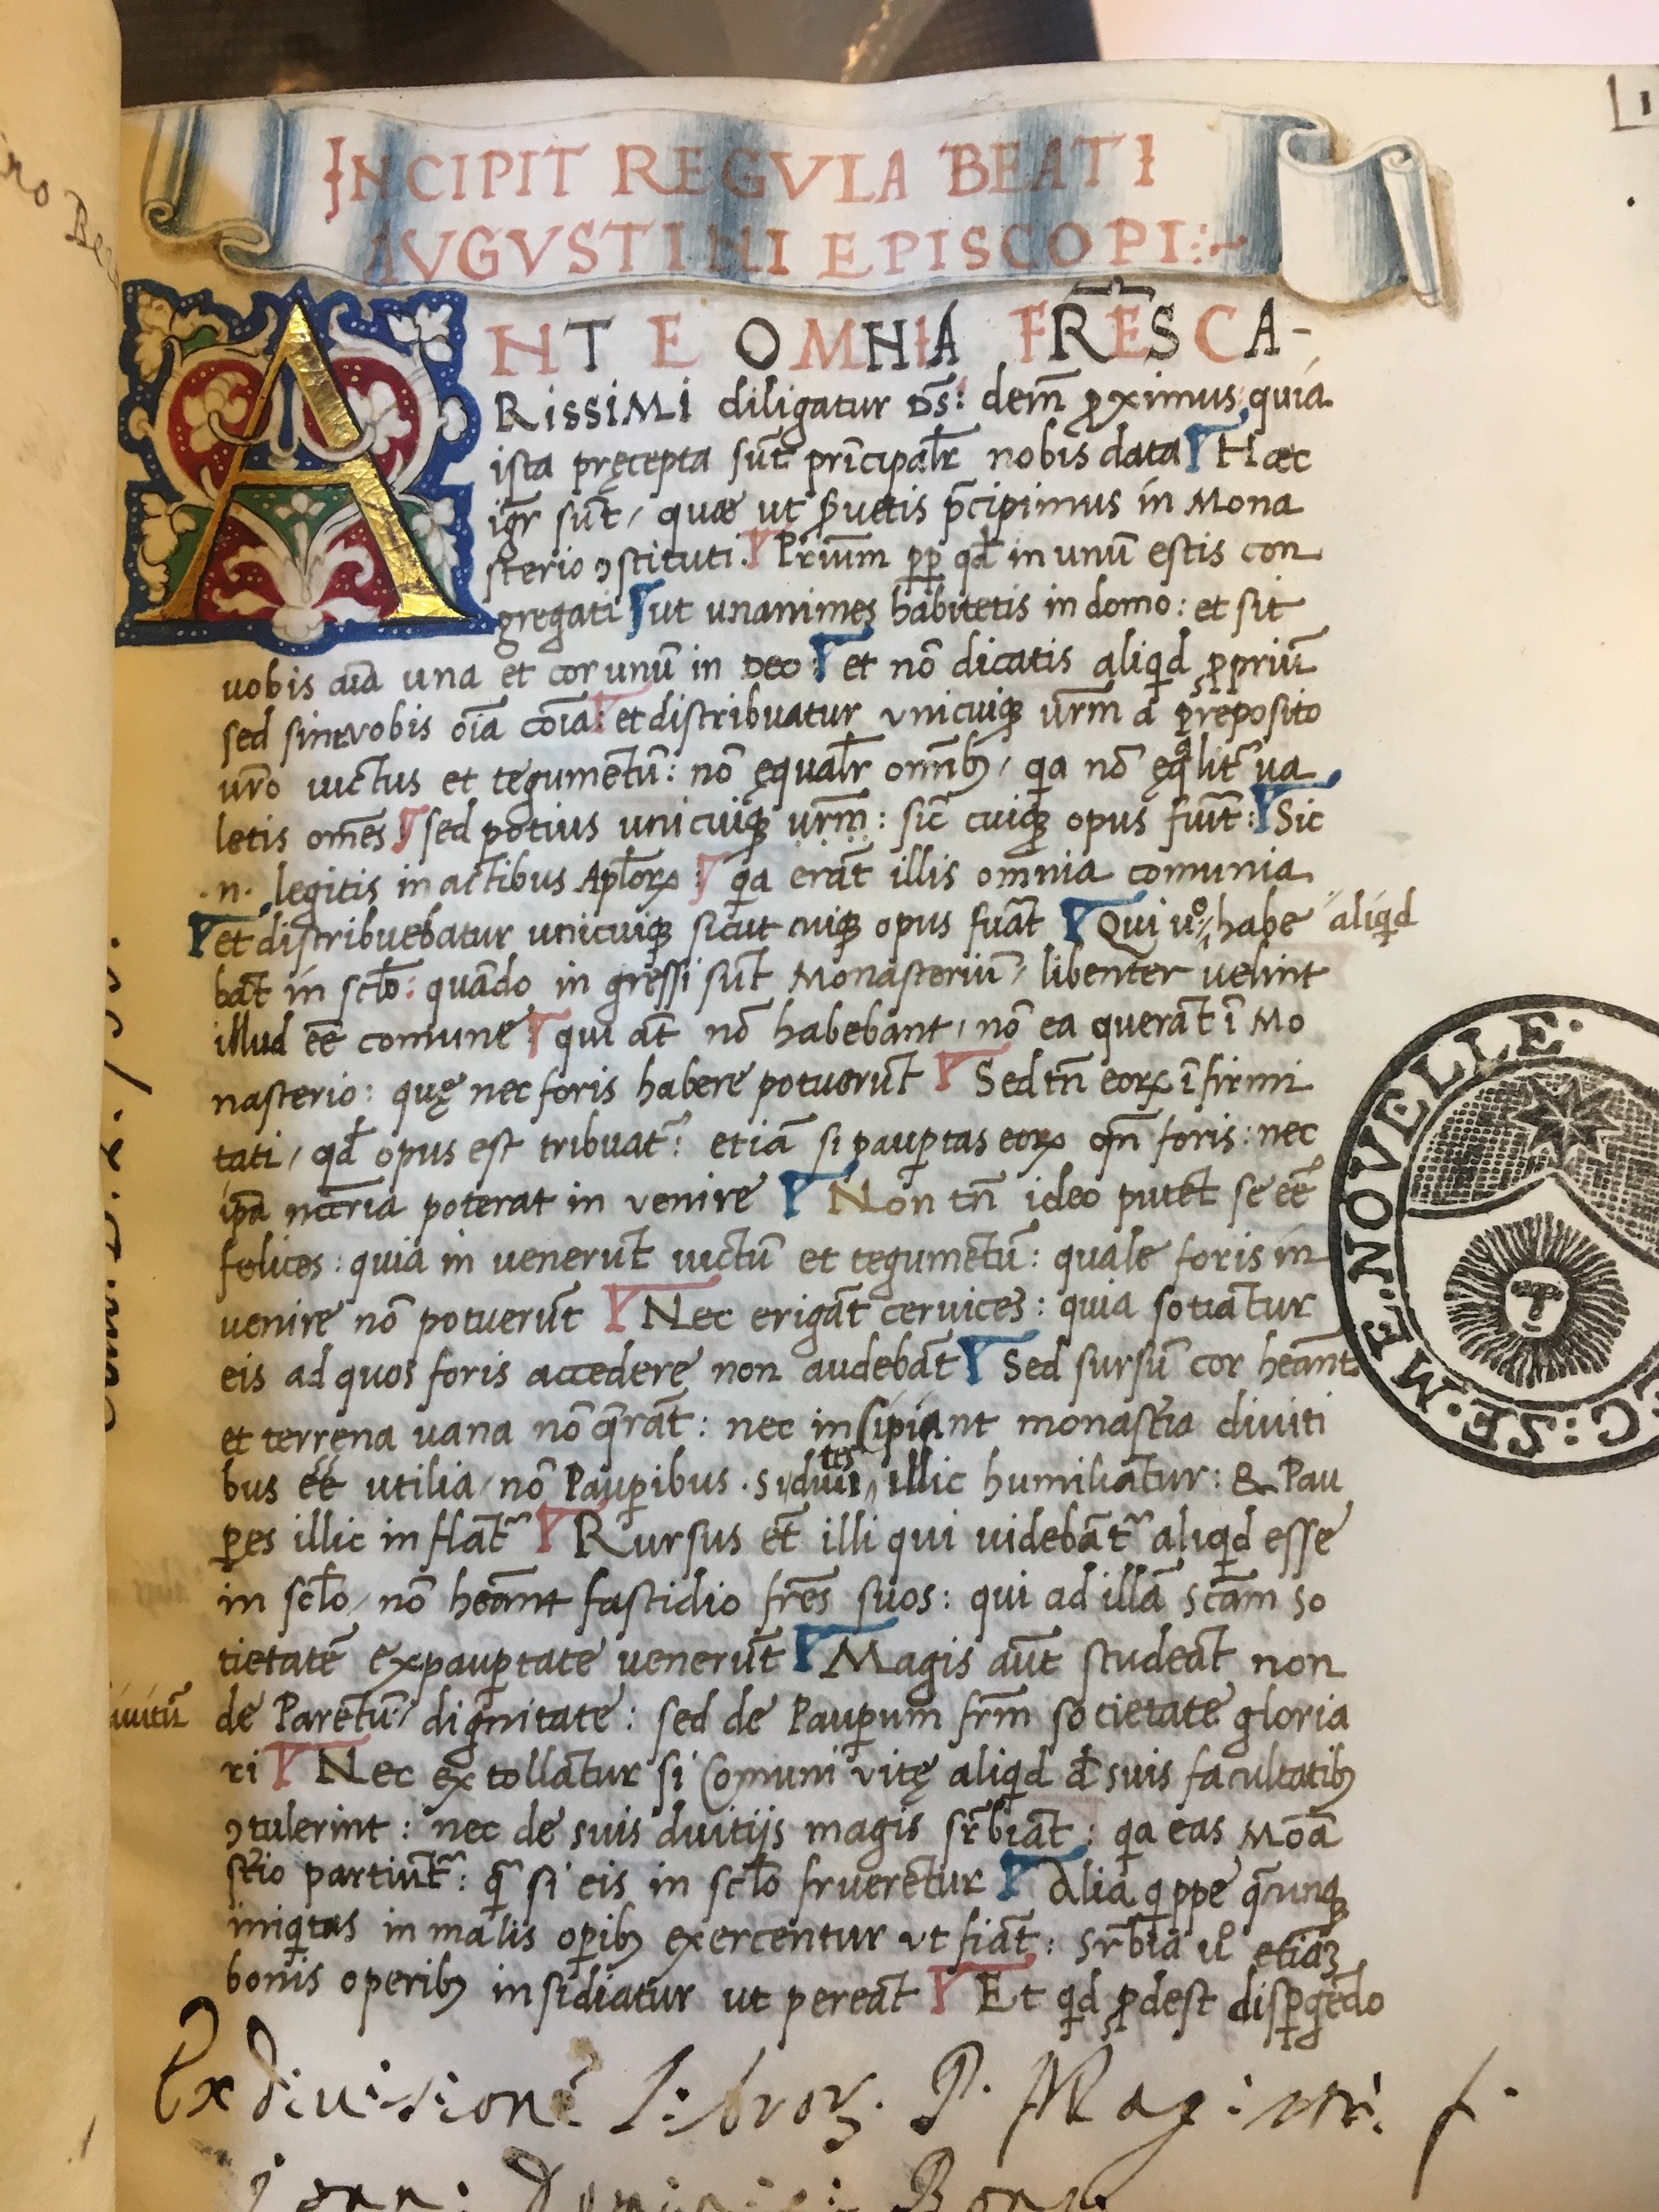 INCIPIT REGVLA BEATI
AVGVSTINI EPISCOPI:~
ANTE OMNIA FRES CA-
RISSIMI diligatur Ds̄: dem̄ ꝓximus, quia
ista pręcepta sūt prīcipalr̄ nobis data Haec
igr̄ sūt, quae ut ꝓuetis p̄cipimus in Mona
sterio ꝯstituti. Prīum pp qd̄ in unū estis con
gregati ut unanimes habitetis in domo: et sit
uobis aīa una et cor unū in Deo: et nō dicatis aliqd ꝓpriū
sed sint vobis oīa cōīa: et distribuatur vnicuiqꝫ urm̄ a preposito
urō uictus et tegumētū: nō ęqualr̄ omībꝫ, qa nō ęqlit̄ ua
letis om̄es sed potius unicuiqꝫ urm̄: sic̄ cuiqꝫ opus fuit̄: Sic
.n. legitis in actibus Apl̄oꝝ qa erāt illis omnia comunia
et distribuebatur unicuiqꝫ sicut cuiqꝫ opus fuāt Qui uº habe aliqd
bāt in scl̄o: quādo in gressi sūt Monasteriū, libenter velint
illud ēē comune qui āt nō habebant, nō ea querāt ī Mo
nasterio: quę nec foris habere potuerūt Sed tn̄ eoꝝ īfirmi
tati, qd̄ opus est tribuat̄: etiā si pauꝑtas eoꝝ qn̄ foris: nec
ip̄a nccr̄ia poterat in venire Non tn̄ ideo putēt se ēē
felices: quia in venerūt uictū et tegumētū: quale foris in
venire nō potuerūt Nec erigāt cervices: quia sotiātur
eis ad quos foris accedere non audebāt Sed sursū cor heānt
et terrena uana nō qrāt: nec insipiant monast̄ia diuiti
bus ēē utilia, nō Pauꝑibus. si diuites illic humiliātur: & Pau
ꝑes illic inflāt̄ Rursus ēt illi qui uidebāt̄ aliqd esse
in scl̄o, nō heānt fastidio frēs suos: qui ad illā scām so
tietatē ex pauꝑtate venerūt Magis aūt studeāt non
diuitū
de Parētū, dignitate: sed de Pauꝑum frm̄ societate gloria
ri Nec extollātur si Comuni vitę aliqd d̄ suis facultatibꝫ
ꝯtulerint: nec de suis diuitijs magis sr̄biāt: qa eas Moā
st̄io partiūt̄: q̄ si eis in scl̄o fruerētur Alia qppe q̄cunqꝫ
iniqtas in malis oꝑibꝫ exercentur vt fiāt: sr̄bia uº etiaꝫ
bonis operibꝫ insidiatur ut pereāt Et qd ꝓdest disꝑgēdo
Ex diuisionē libroꝝ. P. Magistri. f.
NOVELLE